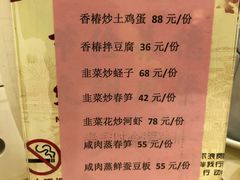 香椿炒土鸡蛋 88 元/份
香椿拌豆腐 36 元/份
韭菜炒蛏子 68 元/份
韭菜炒春笋 42 元/份
韭菜花炒河虾 78 元/份
咸肉蒸春笋 55 元/份
咸肉蒸鲜蚕豆板 55 元/份